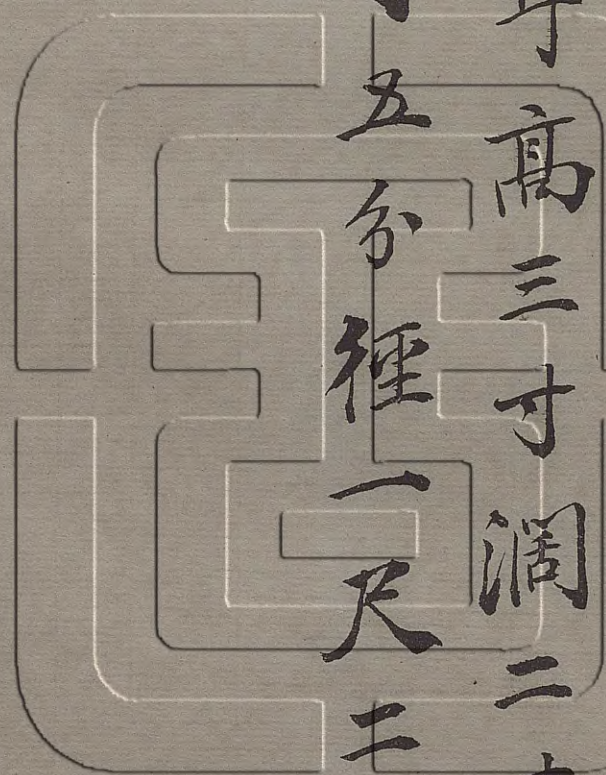 寸高三寸濶二
五分徑一尺二